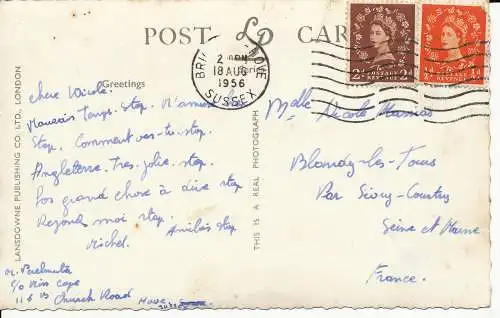 POST CARD
LANSDOWNE PUBLISHING CO. LTD., LONDON
Greetings
Chère Nicole.
Mauvais Temps. Stop. M'amuse
Stop. Comment vas-tu. stop.
Angleterre. Très jolie. stop.
Pas grand chose à dire stop
Répond moi stop.
Amitiés stop
Michel.
c/o Miss Cape
Church Road Hove
THIS IS A REAL PHOTOGRAPH
BRI HOVE
2 PM
18 AUG
1956
SUSSEX
POSTAGE REVENUE
2D 2D
POSTAGE REVENUE
Melle Nicole
Blandy-les-Tours
Par Sivry-Courtry
Seine et Marne
France.